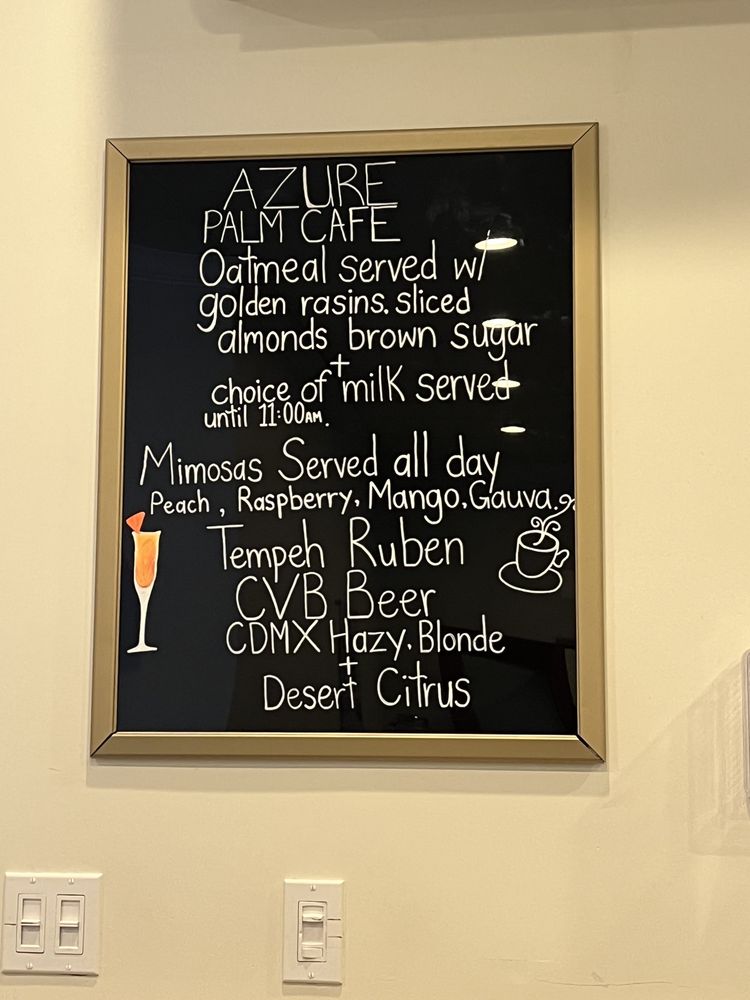 AZURE
PALM CAFE
Oatmeal served w/
golden rasins. sliced
almonds brown sugar
+
choice of milk served
until 11:00AM.
Mimosas Served all day
Peach, Raspberry, Mango, Gauva.
Tempeh Ruben
CVB Beer
CDMX Hazy. Blonde
+
Desert Citrus